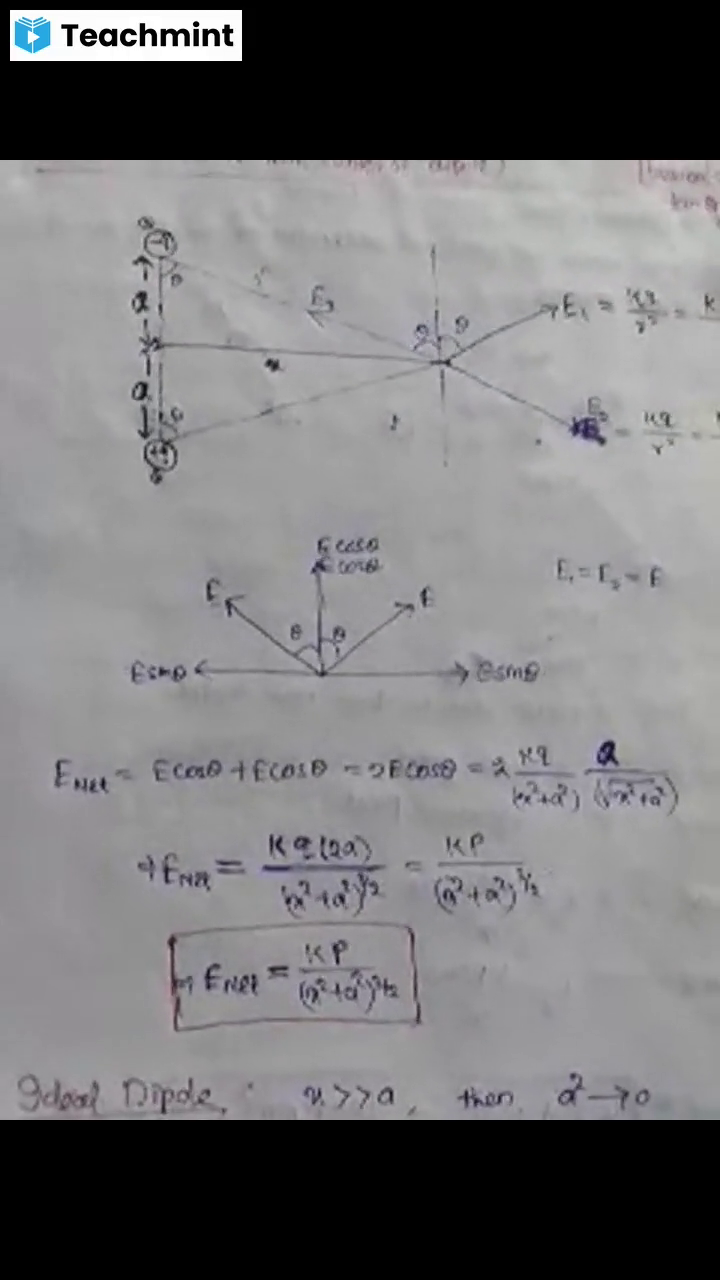 Teachmint
-q
a
θ
r
E₂
θ θ
E₁ = Kq/r² = K
x
a
θ
+q
= Kq/r² =
Ecosθ
Ecosθ
E₁ = E₂ = E
E
E
θ θ
Esinθ
Esinθ
E_Net = Ecosθ + Ecosθ = 2Ecosθ = 2 Kq/(x²+a²) a/(√x²+a²)
⇒ E_Net = Kq(2a)/(x²+a²)^3/2 = KP/(x²+a²)^3/2
⇒ E_Net = KP/(x²+a²)^3/2
Ideal Dipole : x>>a, then, a²→0